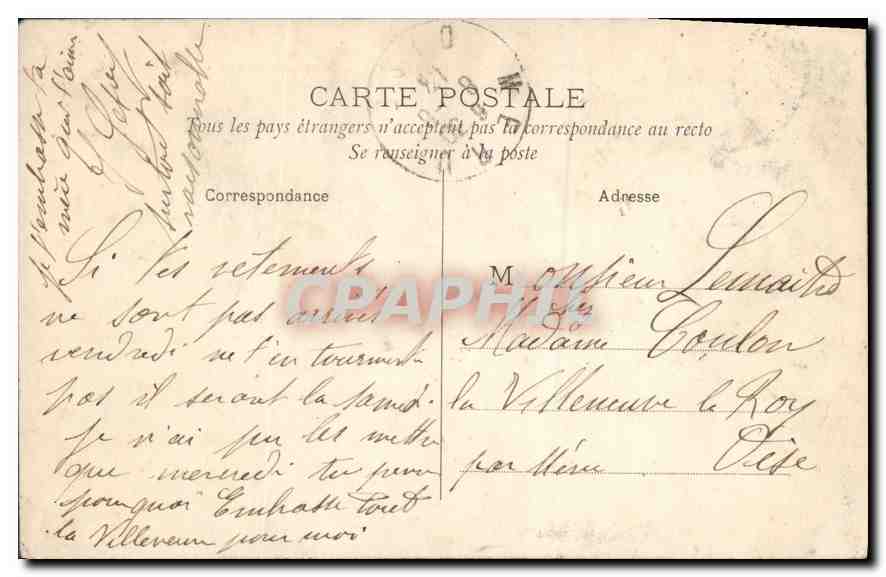 CARTE POSTALE
Tous les pays étrangers n'acceptent pas la correspondance au recto
Se renseigner à la poste
Correspondance
Si tes vetements
ne sont pas arrivés
vendredi ne t'en tourmente
pas il seront la samedi
je n'ai pu les mettre
que mercredi tu
pourquoi Embrasse tout
la Villeneuve pour moi
je t'embrasse ta
mère qui t'aime
surtout soit
raisonnable
Adresse
Monsieur Lemaitre
chez
Madame Coulon
la Villeneuve le Roy
par Méru Oise
CPAPHIL.com